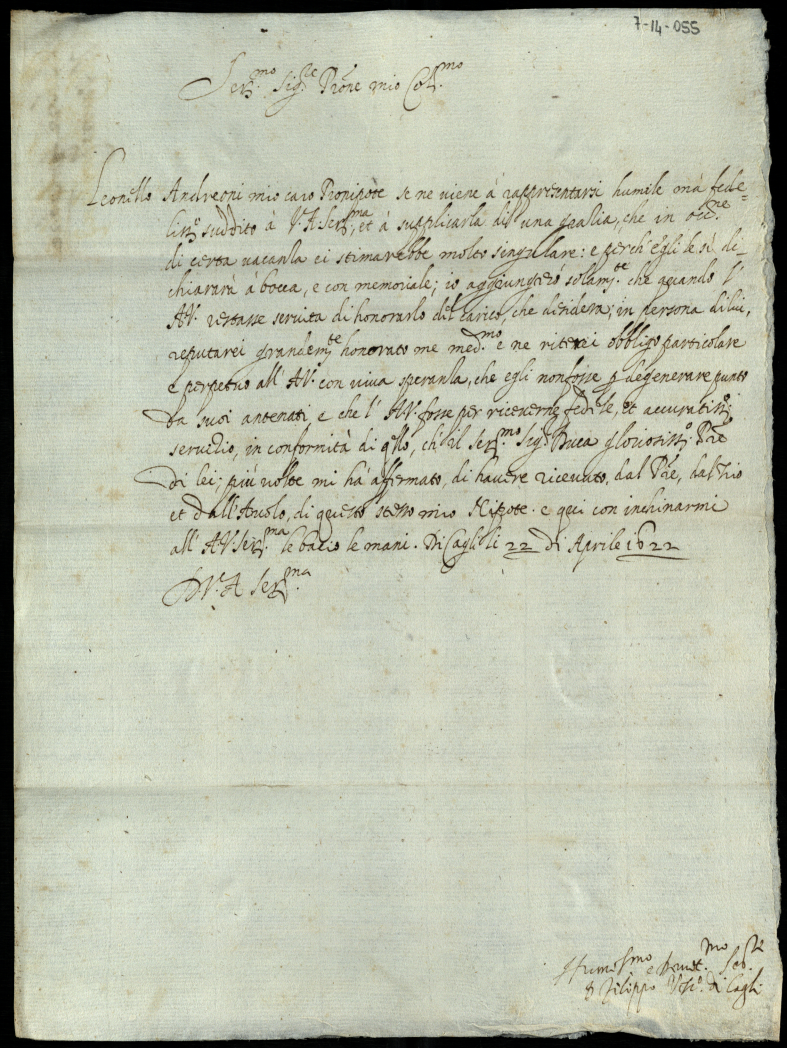 7-14-055
Ser.mo Sig.re Prone mio Col.mo
Leonello Andreoni mio caro Pronipote se ne viene à rappresentarsi humile mà fede=
liss.o suddito à V.A. Ser.ma, et à supplicarla di una gratia, che in occ.ne
di certa vacanza ci stimarebbe molto singulare: e perch'egli le si di-
chiararà à bocca, e con memoriale; io aggiungerò solam.te che quando l'
A.V. restasse servita di honorarlo del carico, che desidera; in persona di lui,
reputarei grandem.te honorato me med.mo e ne riterei obbligo particolare
e perpetuo all'A.V. con viva speranza, che egli non fosse p degenerare punto
da suoi antenati e che l'A.V. fosse per riceverne fedele, et accuratiss.o
servitio, in conformità di qllo, ch'il Ser.mo Sig.r Duca gloriosiss.o Pre
di lei; più volte mi hà affermato, di havere ricevuto, dal Pre, dal Zio
et dall'Avolo, di questo stesso mio Nipote. e qui con inchinarmi
all'A.V. Ser.ma le bacio le mani. Di Cagli li 22 di Aprile 1622
D.V.A. Ser.ma
Humiss.mo e devot.mo Ser.re
Filippo Vesc.o di Cagli